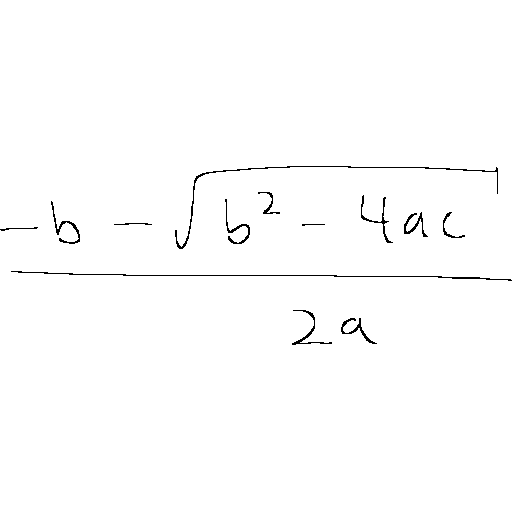 \frac{-b - \sqrt{b^2 - 4ac}}{2a}